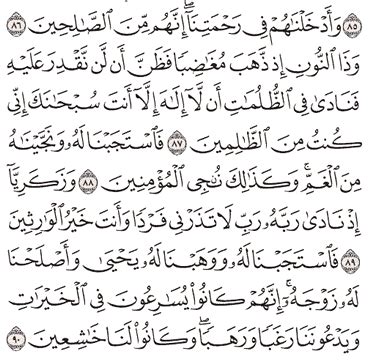 ٨٥ وَأَدْخَلْنَاهُمْ فِي رَحْمَتِنَا ۖ إِنَّهُم مِّنَ الصَّالِحِينَ ٨٦
وَذَا النُّونِ إِذ ذَّهَبَ مُغَاضِبًا فَظَنَّ أَن لَّن نَّقْدِرَ عَلَيْهِ
فَنَادَىٰ فِي الظُّلُمَاتِ أَن لَّا إِلَٰهَ إِلَّا أَنتَ سُبْحَانَكَ إِنِّي
كُنتُ مِنَ الظَّالِمِينَ ٨٧ فَاسْتَجَبْنَا لَهُ وَنَجَّيْنَاهُ
مِنَ الْغَمِّ ۚ وَكَذَٰلِكَ نُنجِي الْمُؤْمِنِينَ ٨٨ وَزَكَرِيَّا
إِذْ نَادَىٰ رَبَّهُ رَبِّ لَا تَذَرْنِي فَرْدًا وَأَنتَ خَيْرُ الْوَارِثِينَ
٨٩ فَاسْتَجَبْنَا لَهُ وَوَهَبْنَا لَهُ يَحْيَىٰ وَأَصْلَحْنَا
لَهُ زَوْجَهُ ۚ إِنَّهُمْ كَانُوا يُسَارِعُونَ فِي الْخَيْرَاتِ
وَيَدْعُونَنَا رَغَبًا وَرَهَبًا ۖ وَكَانُوا لَنَا خَاشِعِينَ ٩٠